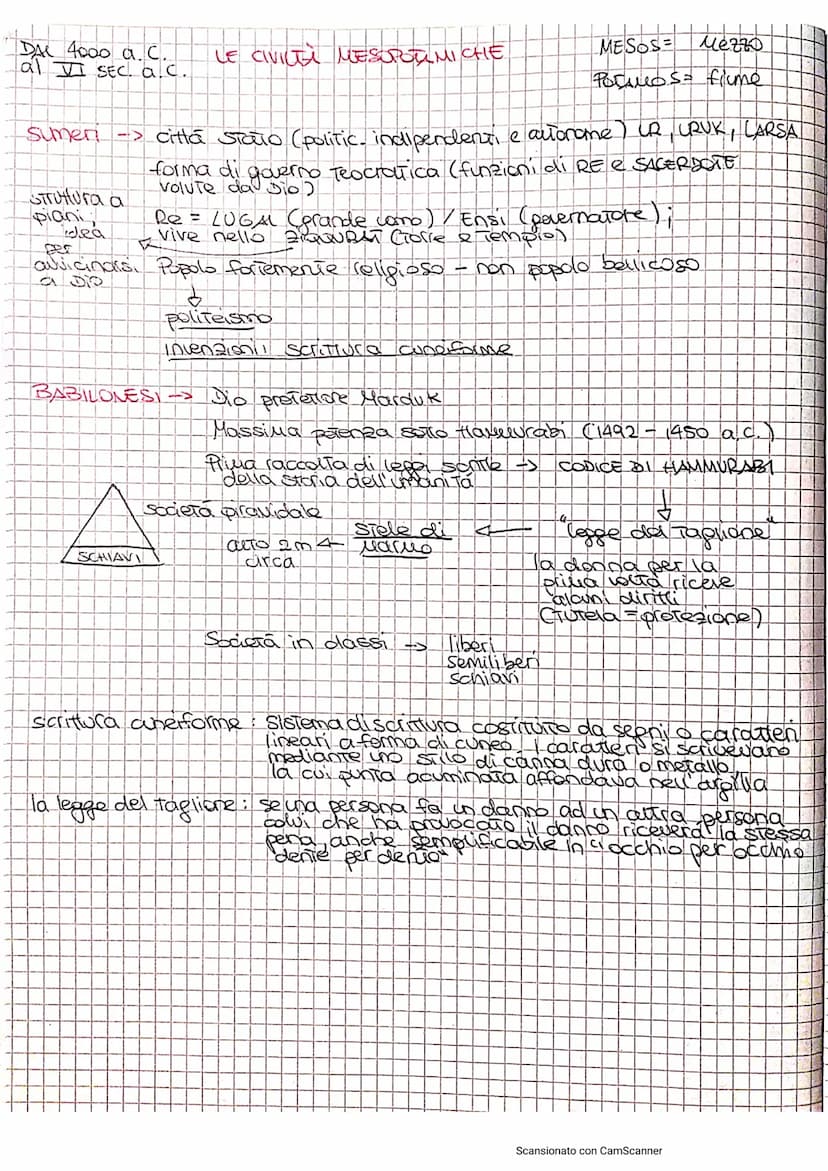 DAL 4000 a.C.
al VI SEC. a.C.
LE CIVILTÀ MESOPOTAMICHE
MESOS = Mezzo
POTAMOS = fiume
SUMERI -> città stato (politic. indipendenti e autonome) UR, URUK, LARSA
forma di governo Teocratica (funzioni di RE e SACERDOTE
volute da Dio)
struttura a
piani,
idea
per
avvicinarsi
a Dio
Re = LUGAL (grande uomo) / Ensi (governatore);
vive nello ZIGGURAT (Torre e Tempio)
Popolo fortemente religioso - non popolo bellicoso
politeismo
Invenzioni: scrittura cuneiforme
BABILONESI -> Dio protettore Marduk
Massima potenza sotto Hammurabi (1492 - 1450 a.C.)
Prima raccolta di leggi scritte -> CODICE DI HAMMURABI
della storia dell'umanità
società piramidale
SCHIAVI
alto 2m
circa
Stele di
Marmo
"legge del Taglione"
la donna per la
prima volta riceve
alcuni diritti
(Tutela = protezione)
Società in classi -> liberi
semiliberi
schiavi
scrittura cuneiforme : sistema di scrittura costituito da segni o caratteri
lineari a forma di cuneo. I caratteri si scrivevano
mediante uno stilo di canna dura o metallo,
la cui punta acuminata affondava nell'argilla
la legge del taglione : se una persona fa un danno ad un altra persona
colui che ha provocato il danno riceverà la stessa
pena, anche semplificabile in "occhio per occhio
dente per dente"
Scansionato con CamScanner